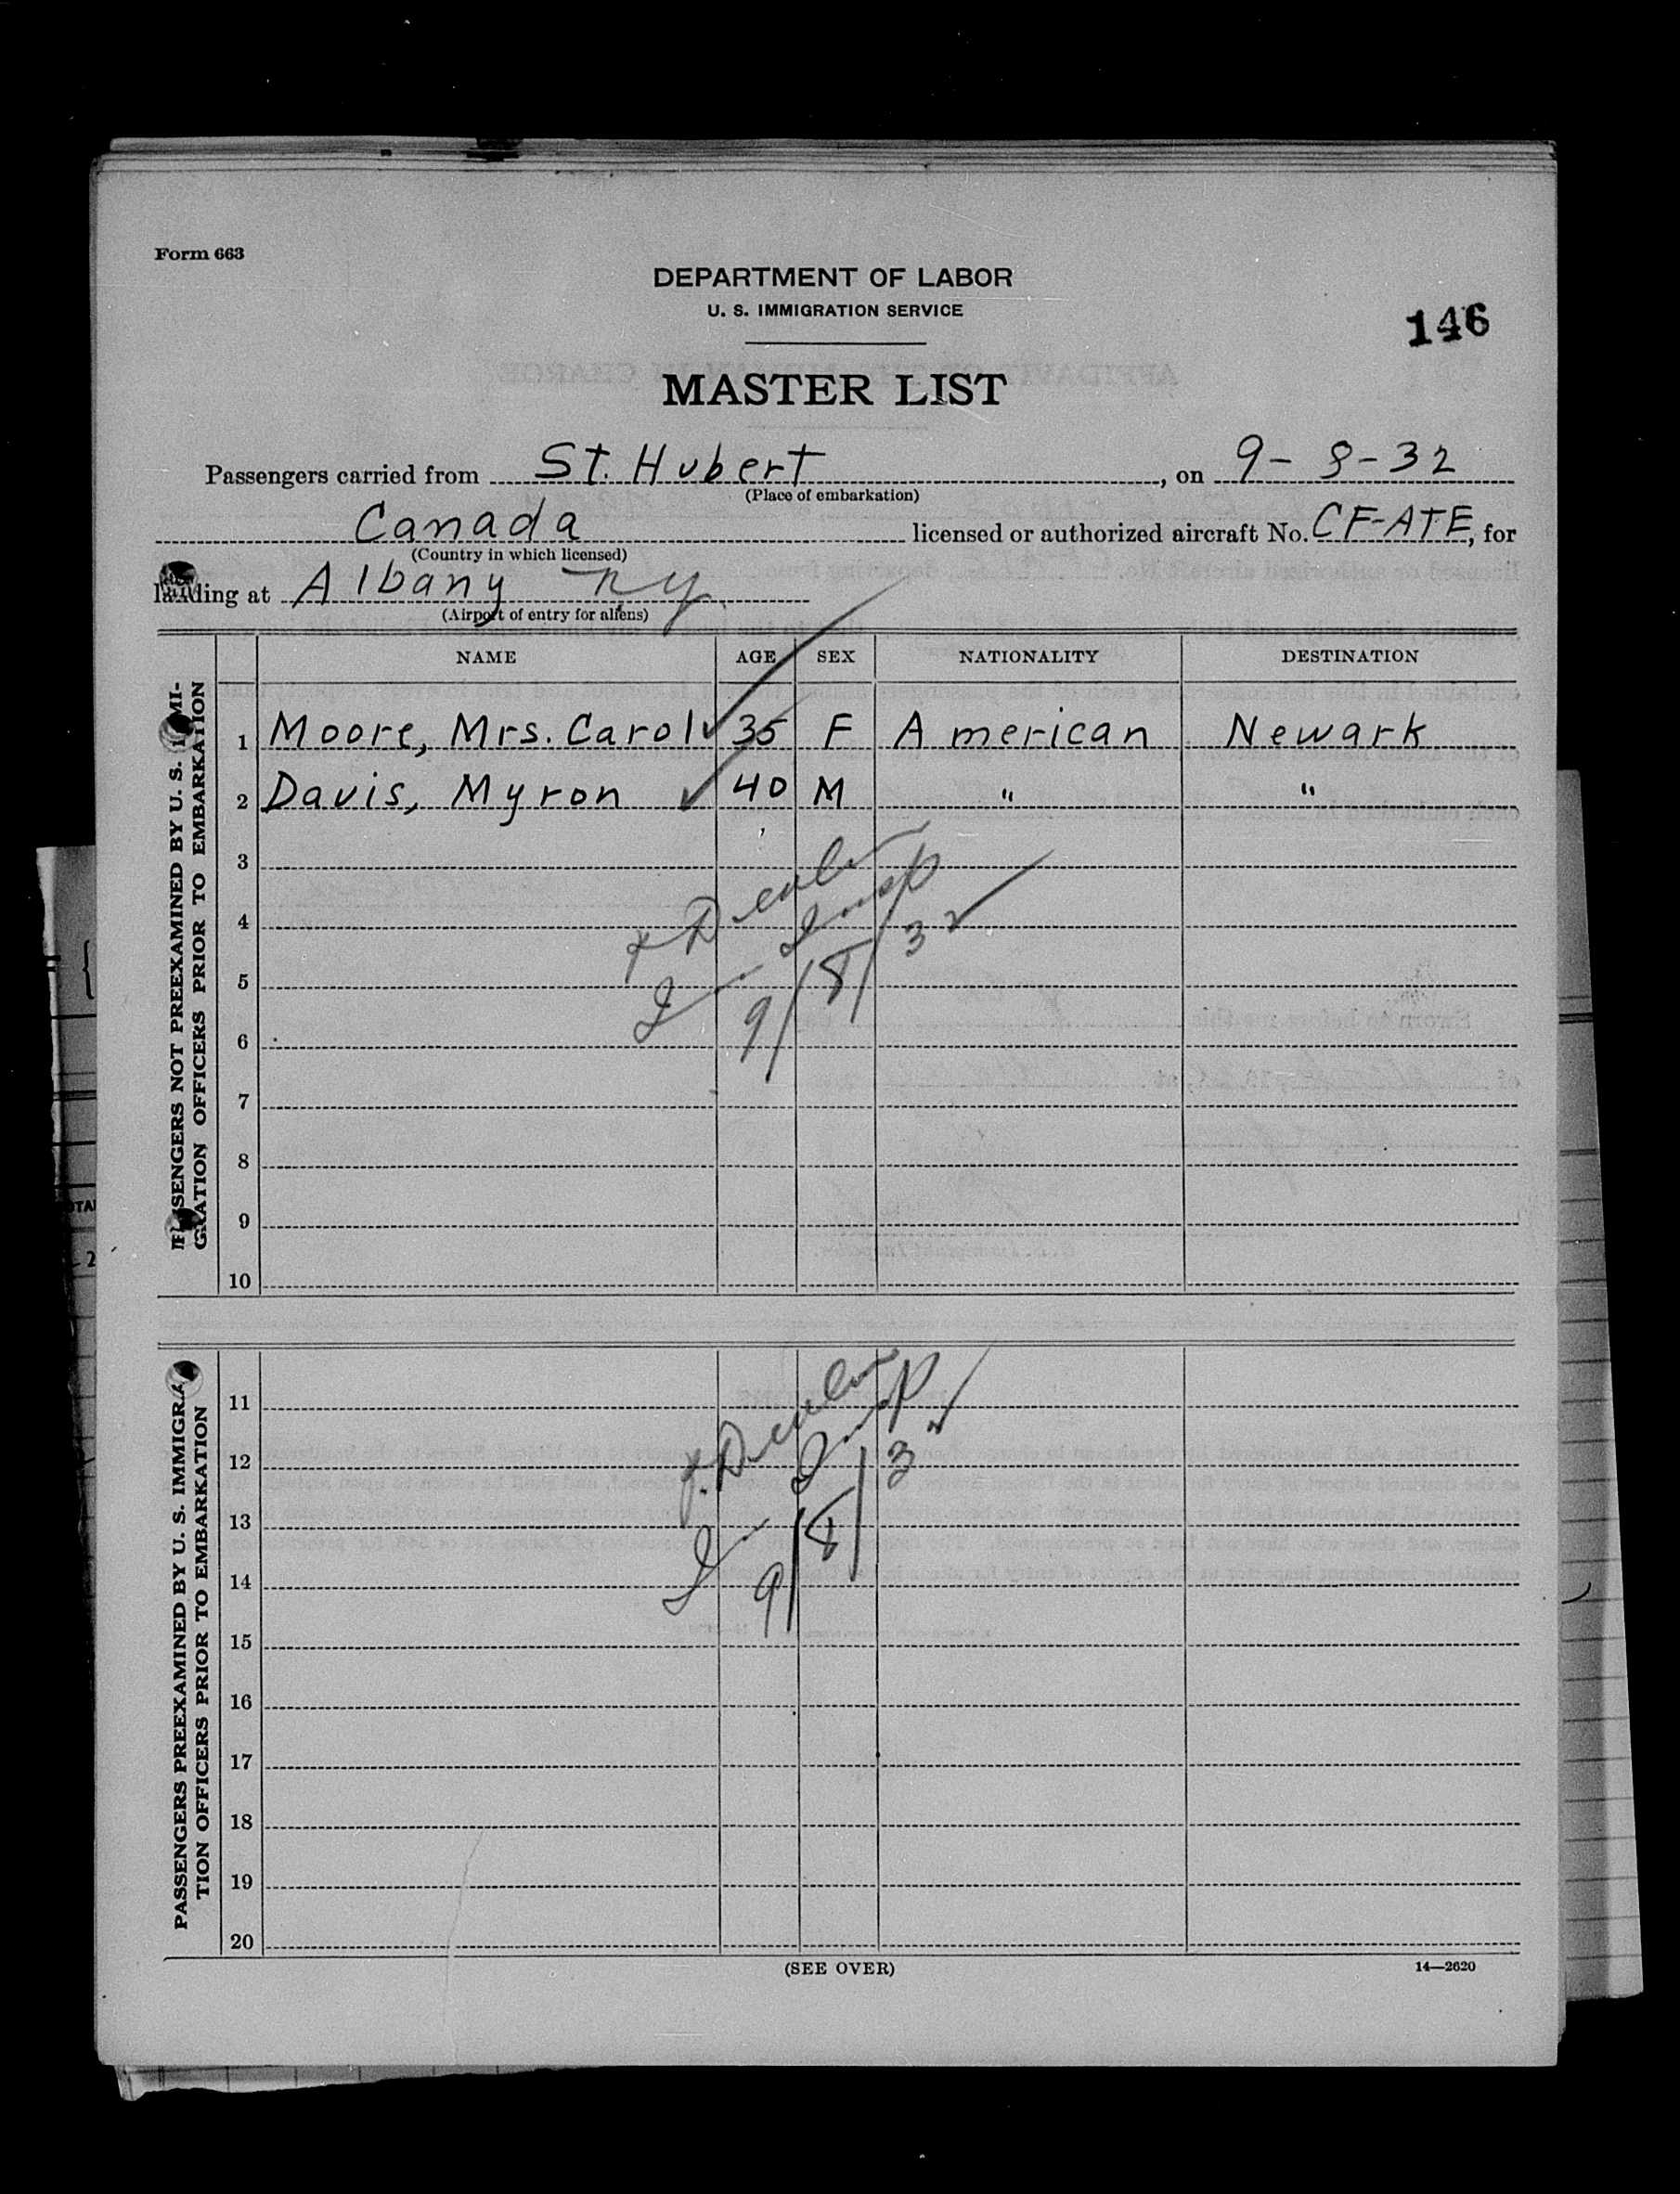 Form 663
DEPARTMENT OF LABOR
U. S. IMMIGRATION SERVICE
146
MASTER LIST
Passengers carried from St. Hubert, on 9-8-32
(Place of embarkation)
Canada licensed or authorized aircraft No. CF-ATE, for
(Country in which licensed)
landing at Albany ny
(Airport of entry for aliens)
NAME AGE SEX NATIONALITY DESTINATION
PASSENGERS NOT PREEXAMINED BY U. S. IMMI-
GRATION OFFICERS PRIOR TO EMBARKATION
1 Moore, Mrs. Carol ✓ 35 F American Newark
2 Davis, Myron ✓ 40 M " "
3
4
5
6
7
8
9
10
Insp
9/8/32
PASSENGERS PREEXAMINED BY U. S. IMMIGRA-
TION OFFICERS PRIOR TO EMBARKATION
11
12
13
14
15
16
17
18
19
20
Insp
9/8/32
(SEE OVER)
14—2620